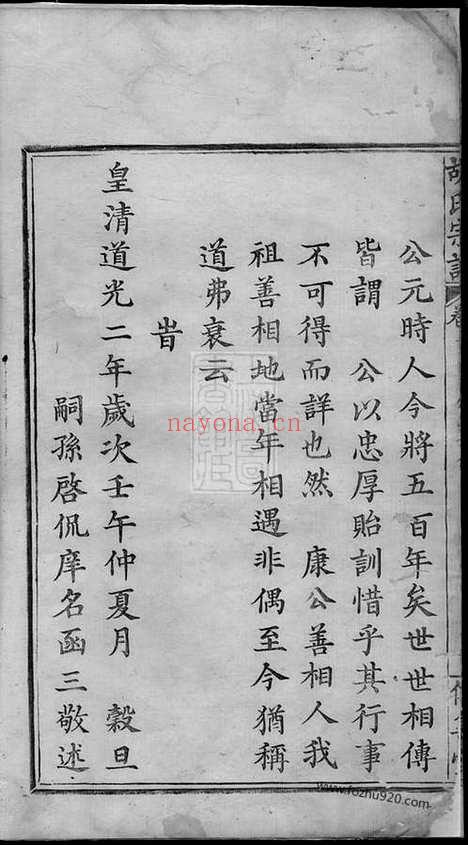 胡氏宗譜 卷
公元時人今將五百年矣世世相傳
皆謂 公以忠厚貽訓惜乎其行事
不可得而詳也然 康公善相人我
祖善相地當年相遇非偶至今猶稱
道弗衰云
旹
皇清道光二年歲次壬午仲夏月 穀旦
嗣孫啓侃庠名函三敬述
nayona.cn
www.fozhu920.com